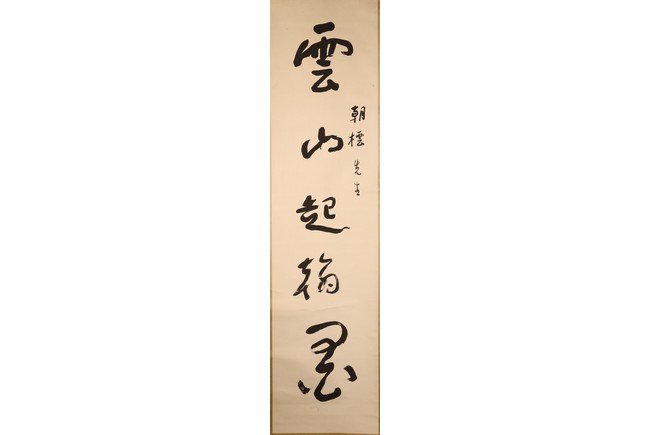 朝橒先生
雲山起翰墨